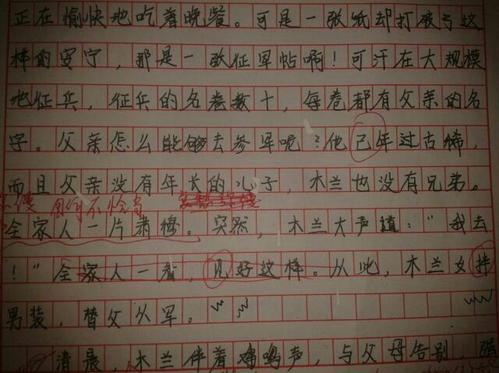 正在愉快地吃着晚餐。可是一张纸却打破了这
样的安宁，那是一张征军帖啊！可汗在大规模
地征兵，征兵的名卷数十，每卷都有父亲的名
字。父亲怎么能够去参军呢？他己年过古稀，
而且父亲没有年长的儿子，木兰也没有兄弟。
全家人一片肃穆。突然，木兰大声道：“我去
！”全家人一看，见好这样。从此，木兰女扮
男装，替父从军。
清晨，木兰伴着鸡鸣声，与父母告别，